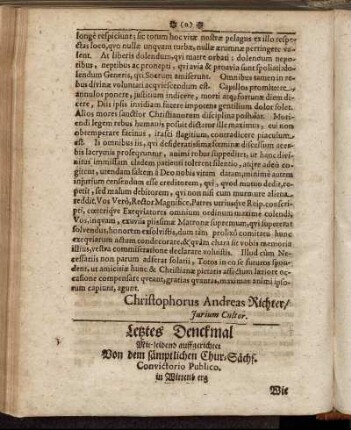 (o)
longè respiciunt; sic totum hoc vitæ nostræ pelagus ex illo respec-
tas loco, quo nullæ unquam turbæ, nullæ ærumnæ pertingere va-
lent. At liberis dolendum, qui matre orbati: dolendum nepo-
tibus, neptibus ac pronepti, qui avia & proavia sunt spoliati: do-
lendum Generis, qui Socrum amiserunt. Omnibus tamen in re-
bus divinæ voluntati acquiescendum est. Capillos promittere,
annulos ponere, justitium indicere, mori atque fortunæ diem di-
cere, Diis ipsis insidiam facere impotens gentilium dolor solet.
Alios mores sanctior Christianorum disciplina postulat. Mori-
endi legem rebus humanis posuit dictator ille maximus, cui non
obtemperare facinus, irasci flagitium, contradicere piaculum
est. In omnibus iis, qui desideratissimæ fœminæ discessum acer-
bis lacrymis prosequuntur, animi robur suppeditet, ut hunc divi-
nitus immissam cladem patienti tolerent silentio, atque adeò co-
gitent, utendam saltem à Deo nobis vitam datam, minimè autem
injurium censendum esse creditorem, qui, quod mutuo dedit, re-
petit, sed malum debitorem, qui non nisi cum murmure aliena
reddit. Vos Verò, Rector Magnifice, Patres utriusque Reip. conscri-
pti, cæterique Exequiatores omnium ordinum maxime colendi
Vos, inquam, exuviis piissimæ Matronæ supremum, qui superest
solvendus, honorem exsolvistis, dum tam prolixo comitatu hunc
exequiarum actum condecorare & quàm chara sit vobis memoria
illius, vestra commiseratione declarare voluistis. Illud cùm Ne-
cessariis non parum adferat solatii, Totos in eo se futuros spon-
dent, ut amicitiæ hunc & Christianæ pietatis affectum lætiore oc-
casione compensare queant, gratias quantas maximas animi ipso-
rum capiunt, agunt.
Christophorus Andreas Richter/
Jurium Cultor.
Letztes Denckmal
Mit-leidend auffgerichtet
Von dem sämptlichen Chur-Sächs.
Convictorio Publico,
in Wittenberg
Wie